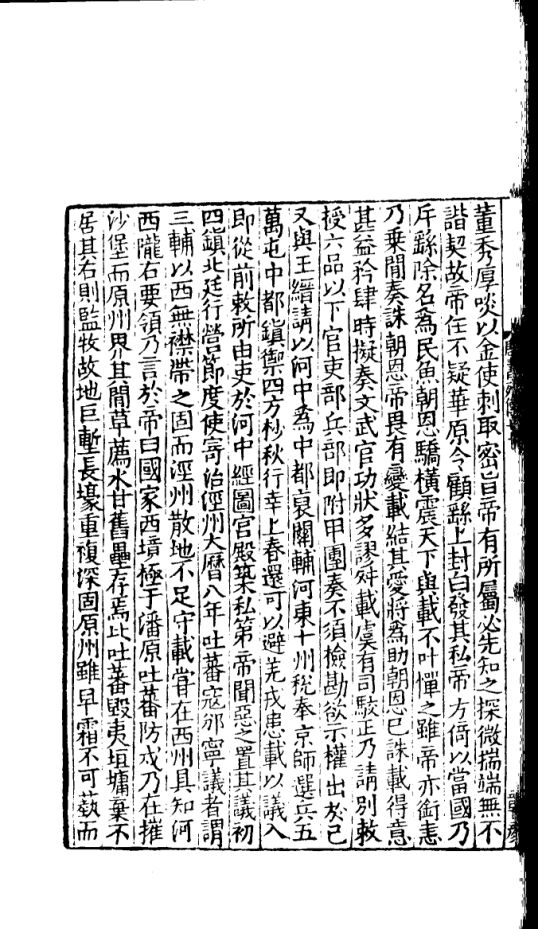 董秀厚啖以金使刺取密旨帝有所屬必先知之探微揣端無不
諧契故帝任不疑華原令顧繇上封白發其私帝方倚以當國乃
斥繇除名爲民魚朝恩驕橫震天下與載不叶憚之雖帝亦銜恚
乃乗閒奏誅朝恩帝畏有變載結其愛將爲助朝恩已誅載得意
甚益矜肆時擬奏文武官功狀多謬舛載虞有司駮正乃請別敕
授六品以下官吏部兵部即附甲團奏不須檢勘欲示權出於己
又與王縉請以河中爲中都裒關輔河東十州稅奉京師選兵五
萬屯中都鎮禦四方杪秋行幸上春還可以避羌戎患載以議入
即從前敕所由吏於河中經圖宫殿築私第帝聞惡之置其議初
四鎮北廷行營節度使寄治涇州大曆八年吐蕃寇邠寧議者謂
三輔以西無襟帶之固而涇州散地不足守載嘗在西州具知河
西隴右要領乃言於帝曰國家西境極于潘原吐蕃防戍乃在摧
沙堡而原州界其閒草薦水甘舊壘存焉比吐蕃毀夷垣墉棄不
居其右則監牧故地巨塹長壕重複深固原州雖早霜不可蓺而